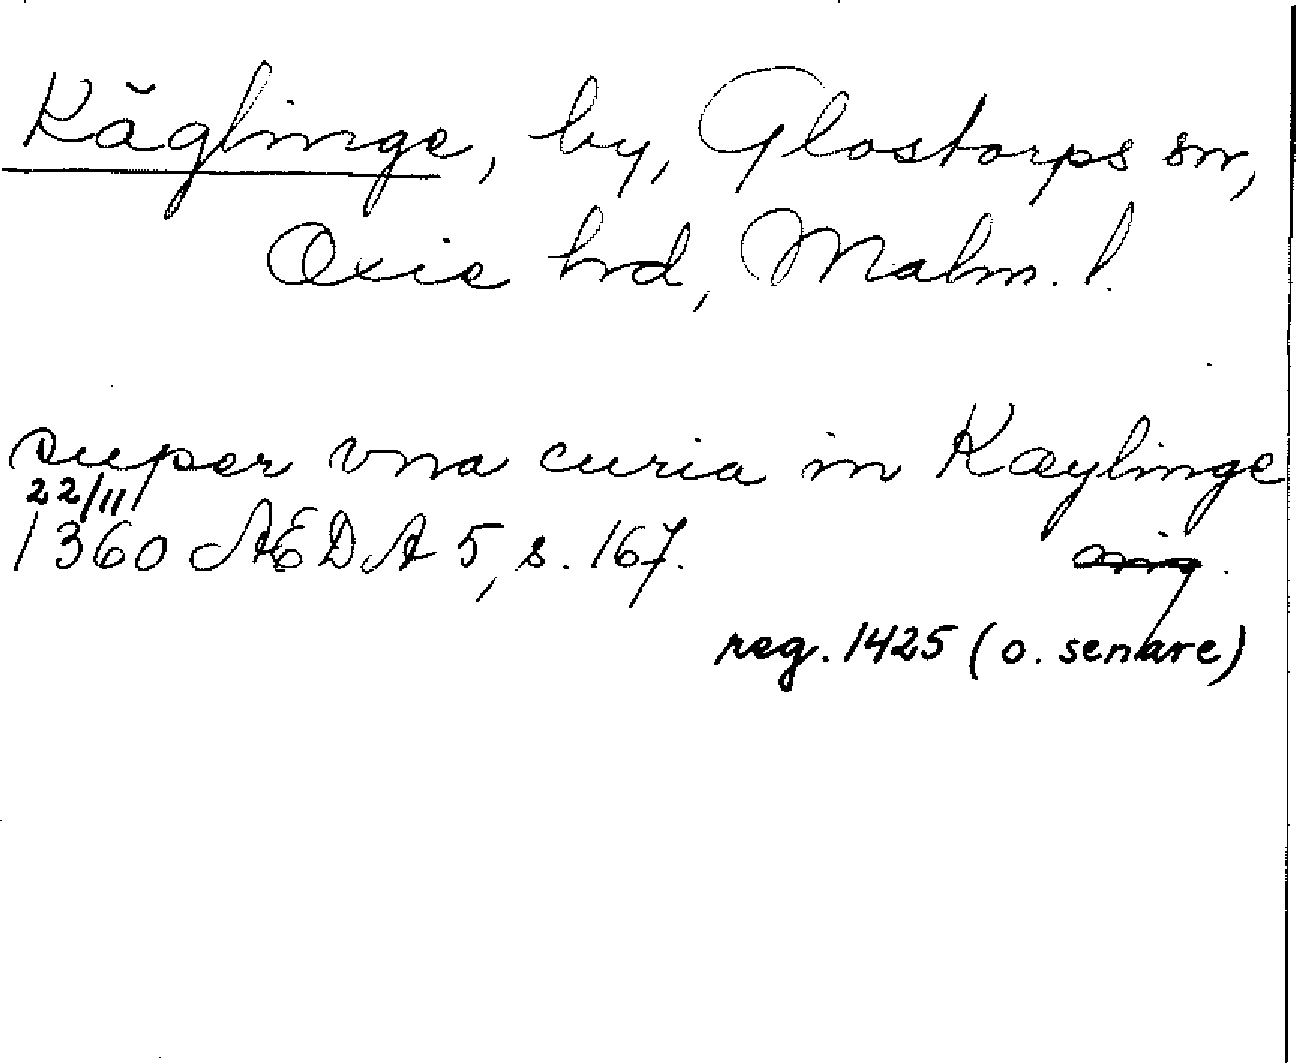 Käglinge, by, Glostorps sn,
Oxie hd, Malm. l.
super vna curia in Kæylinge
22/11
1360 ÆDA 5, s. 167.
reg. 1425 (o. senare)